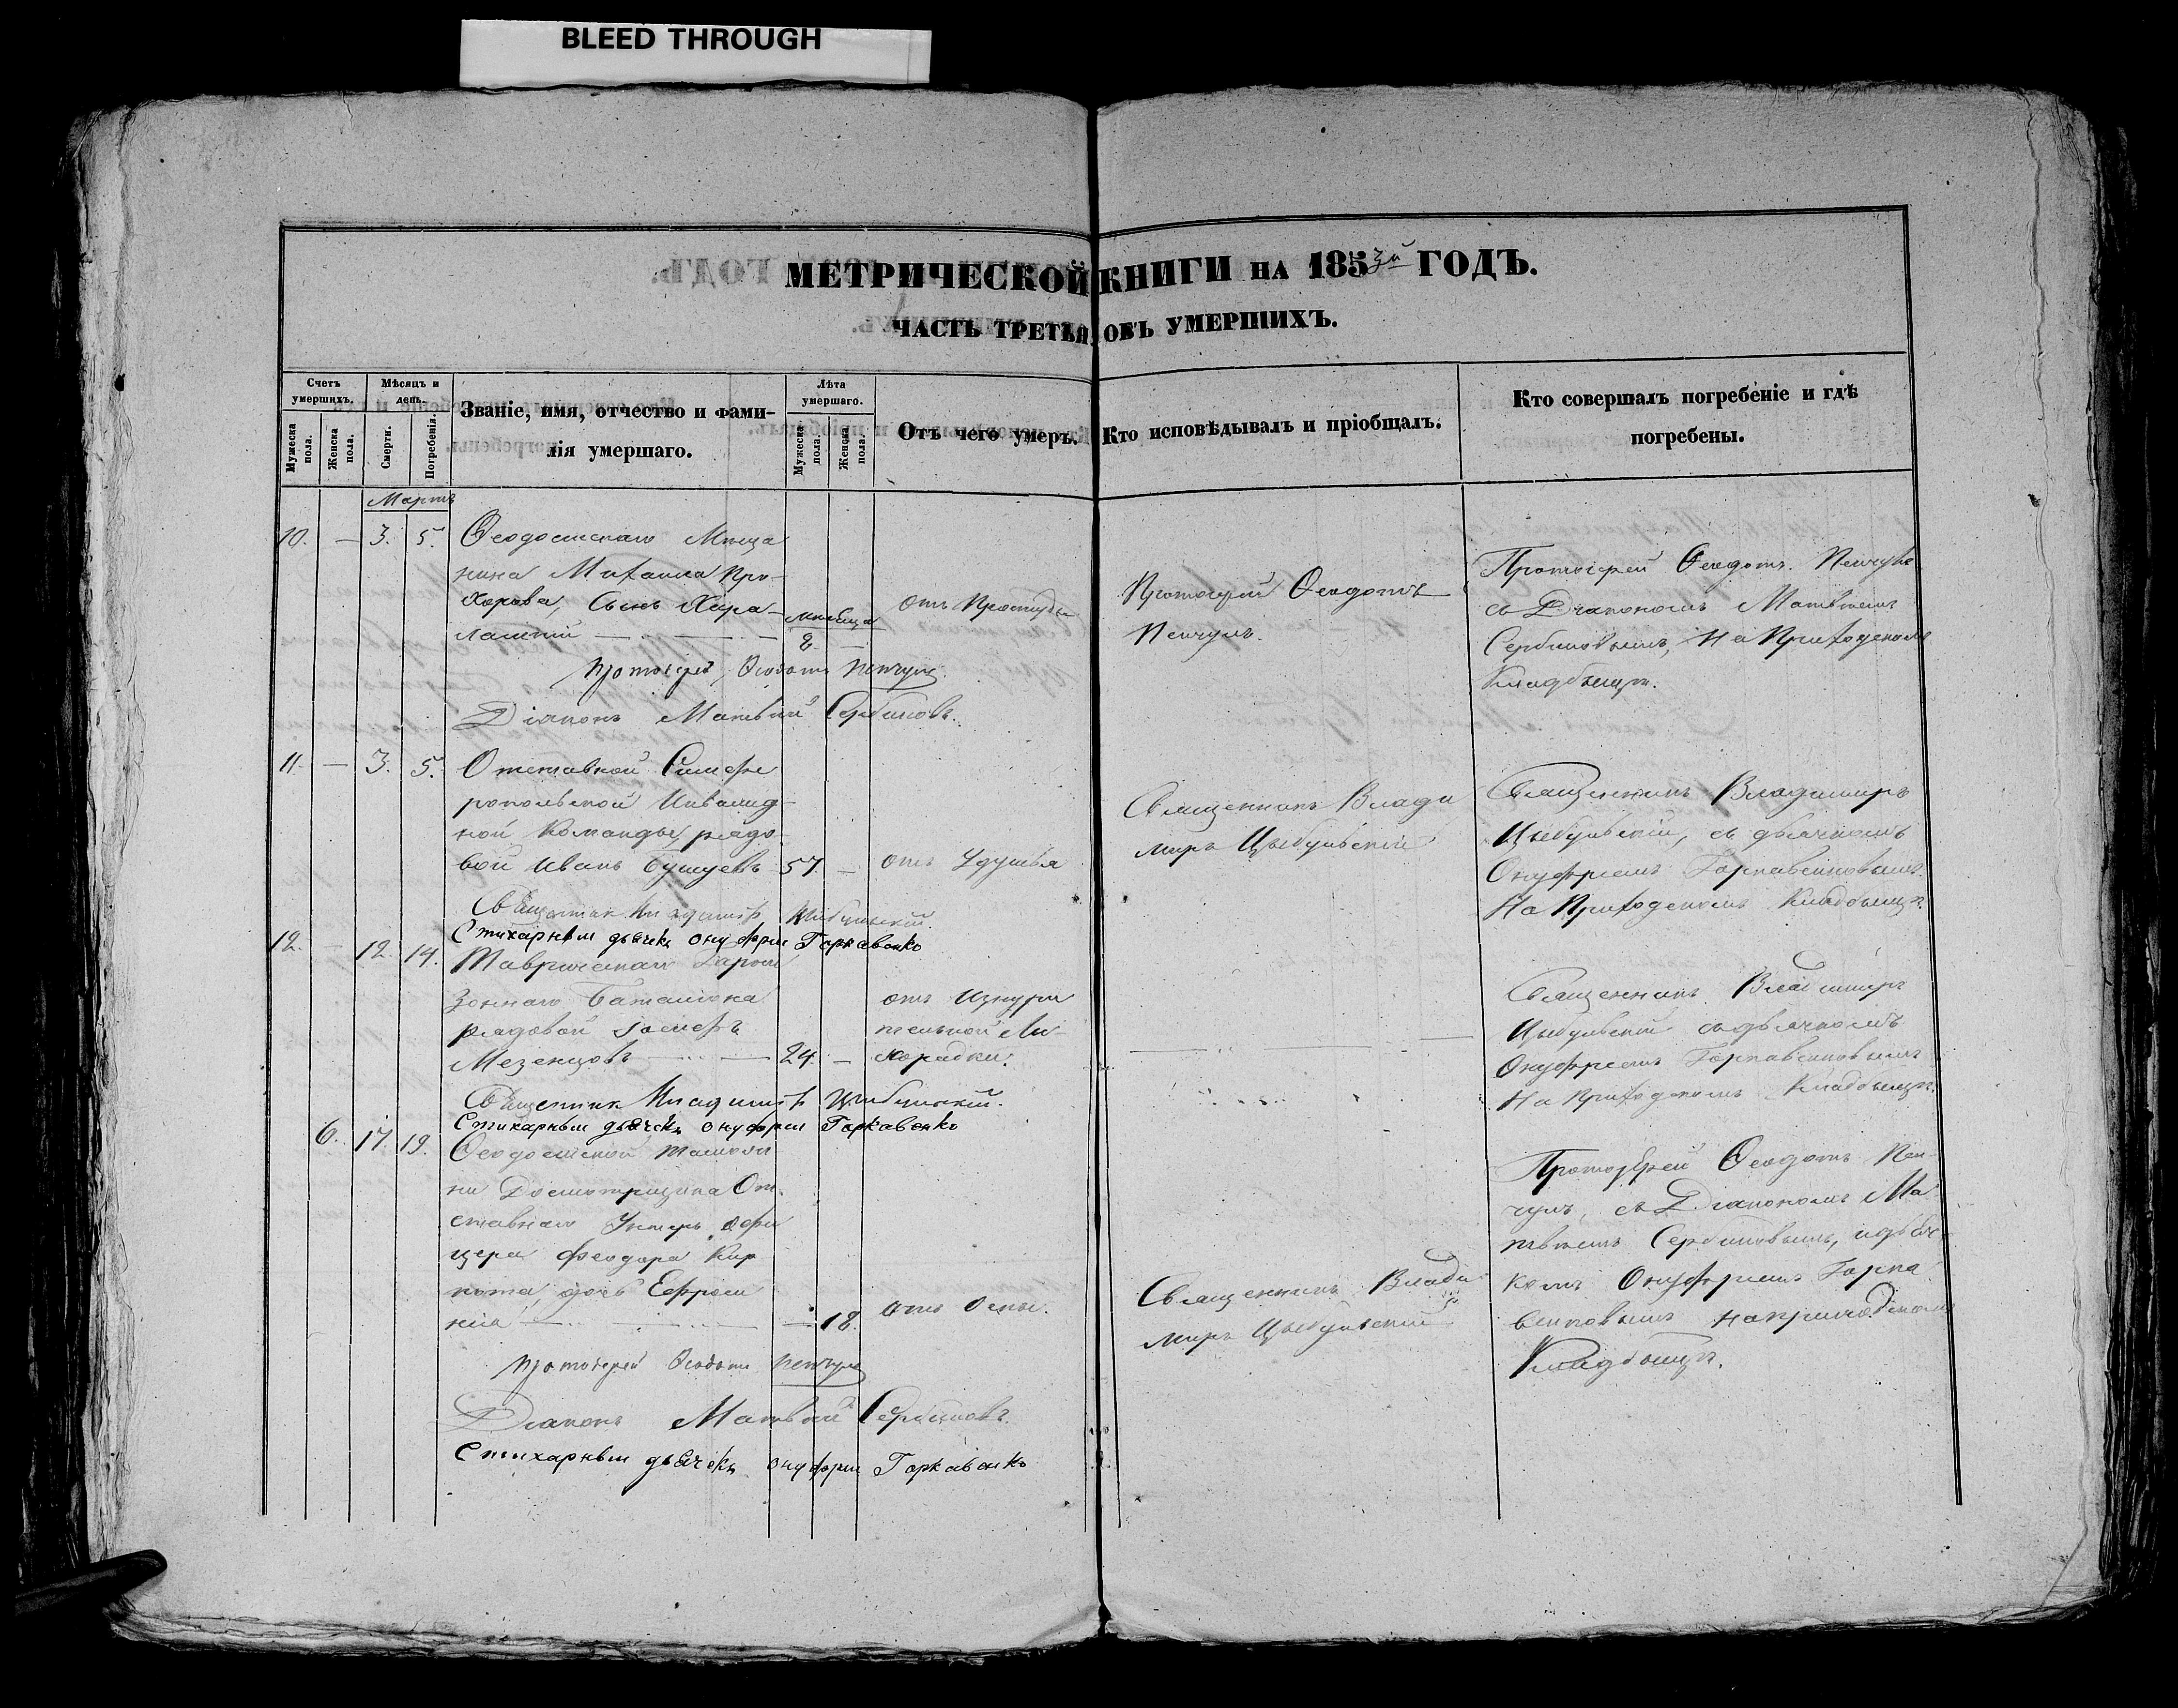 BLEED THROUGH
МЕТРИЧЕСКОЙ КНИГИ НА 1853й ГОДЪ.
ЧАСТЬ ТРЕТЬЯ, ОБЪ УМЕРШИХЪ.
Счетъ умершихъ.
Мужеска пола.
Женска пола.
Мѣсяцъ и день.
Смерти.
Погребенія.
Званіе, имя, отчество и фами-
лія умершаго.
Лѣта умершаго.
Мужеска пола.
Женска пола.
Отъ чего умеръ.
Кто исповѣдывалъ и пріобщалъ.
Кто совершалъ погребеніе и гдѣ
погребены.
Мартъ
10. — 3. 5. Ѳеодосійскаго Мѣща
нина Михаила Про-
хорова, Сынъ Хара-
лампій — мѣсяца 8. — отъ Простуды
Протоіерей Ѳеодотъ
Пенчулъ.
Протоіерей Ѳеодотъ Пенчулъ
съ Діакономъ Матвѣемъ
Сербиновымъ, На Приходскомъ
Кладбищѣ.
Протоіерей Ѳеодотъ Пенчулъ
Діаконъ Матвѣй Сербиновъ.
11. — 3. 5. Отставной Симфе
ропольской Инвалид-
ной Команды, рядо-
вой Иванъ Бушуевъ 57 — отъ Удушья
Священникъ Влади
миръ Цыбульскій
Священникъ Владимиръ
Цыбульскій, съ дьячкомъ
Онуфріемъ
На Приходскомъ Кладбищѣ.
Священник Владимір Цибульский.
Стихарный дьячекъ Онуфрий Горкавенко
12. — 12. 14. Таврическаго Гарни
зоннаго Баталіона
рядовой Іосифъ
Мезенцовъ — 24. — отъ Изнури
тельной Ли-
хорадки.
Священникъ Владиміръ
Цыбульскій съ дьячкомъ
Онуфріемъ
На Приходскомъ Кладбищѣ.
Священник Владимір Цибульский.
Стихарный дьячекъ Онуфрий Горкавенко
6. 17. 19. Ѳеодосійской Таможи
ни Досмотрщика От-
ставнаго Унтеръ Офи
цера Феодора Кир
дочь Ефроси
нія — 18. отъ Оспы.
Священникъ Влади
миръ Цыбульскій
Протоіерей Ѳеодотъ Пен-
чулъ, съ Діакономъ Ма
твѣемъ Сербиновымъ, и дьяч
комъ Онуфріемъ Горка
на приходскомъ
Кладбищѣ.
Протоіерей Ѳеодотъ Пенчулъ
Діаконъ Матвѣй Сербиновъ.
Стихарный дьячекъ Онуфрий Горкавенко